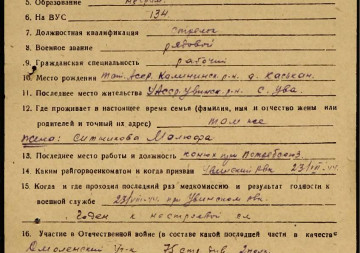 5. Образование
6. На ВУС 134
7. Должностная квалификация стрелок
8. Военное звание рядовой
9. Гражданская специальность рабочий
10. Место рождения Тат. Асср. Калининск. р-н. д.
11. Последнее место жительства УАсср. Увинск. р-н. с. Ува.
12. Где проживает в настоящее время семья (фамилия, имя и отчество жены или
родителей и точный их адрес) там же
жена: Ситникова
13. Последнее место работы и должность
14. Каким райгорвоенкоматом и когда призван Увинский Рвк 23/
15. Когда и где проходил последний раз медкомиссию и результат годности к
военной службе 23/ при Увинском Рвк.
Годен к строевой сл
16. Участие в Отечественной войне (в составе какой последней части в качестве
75 стр. див.